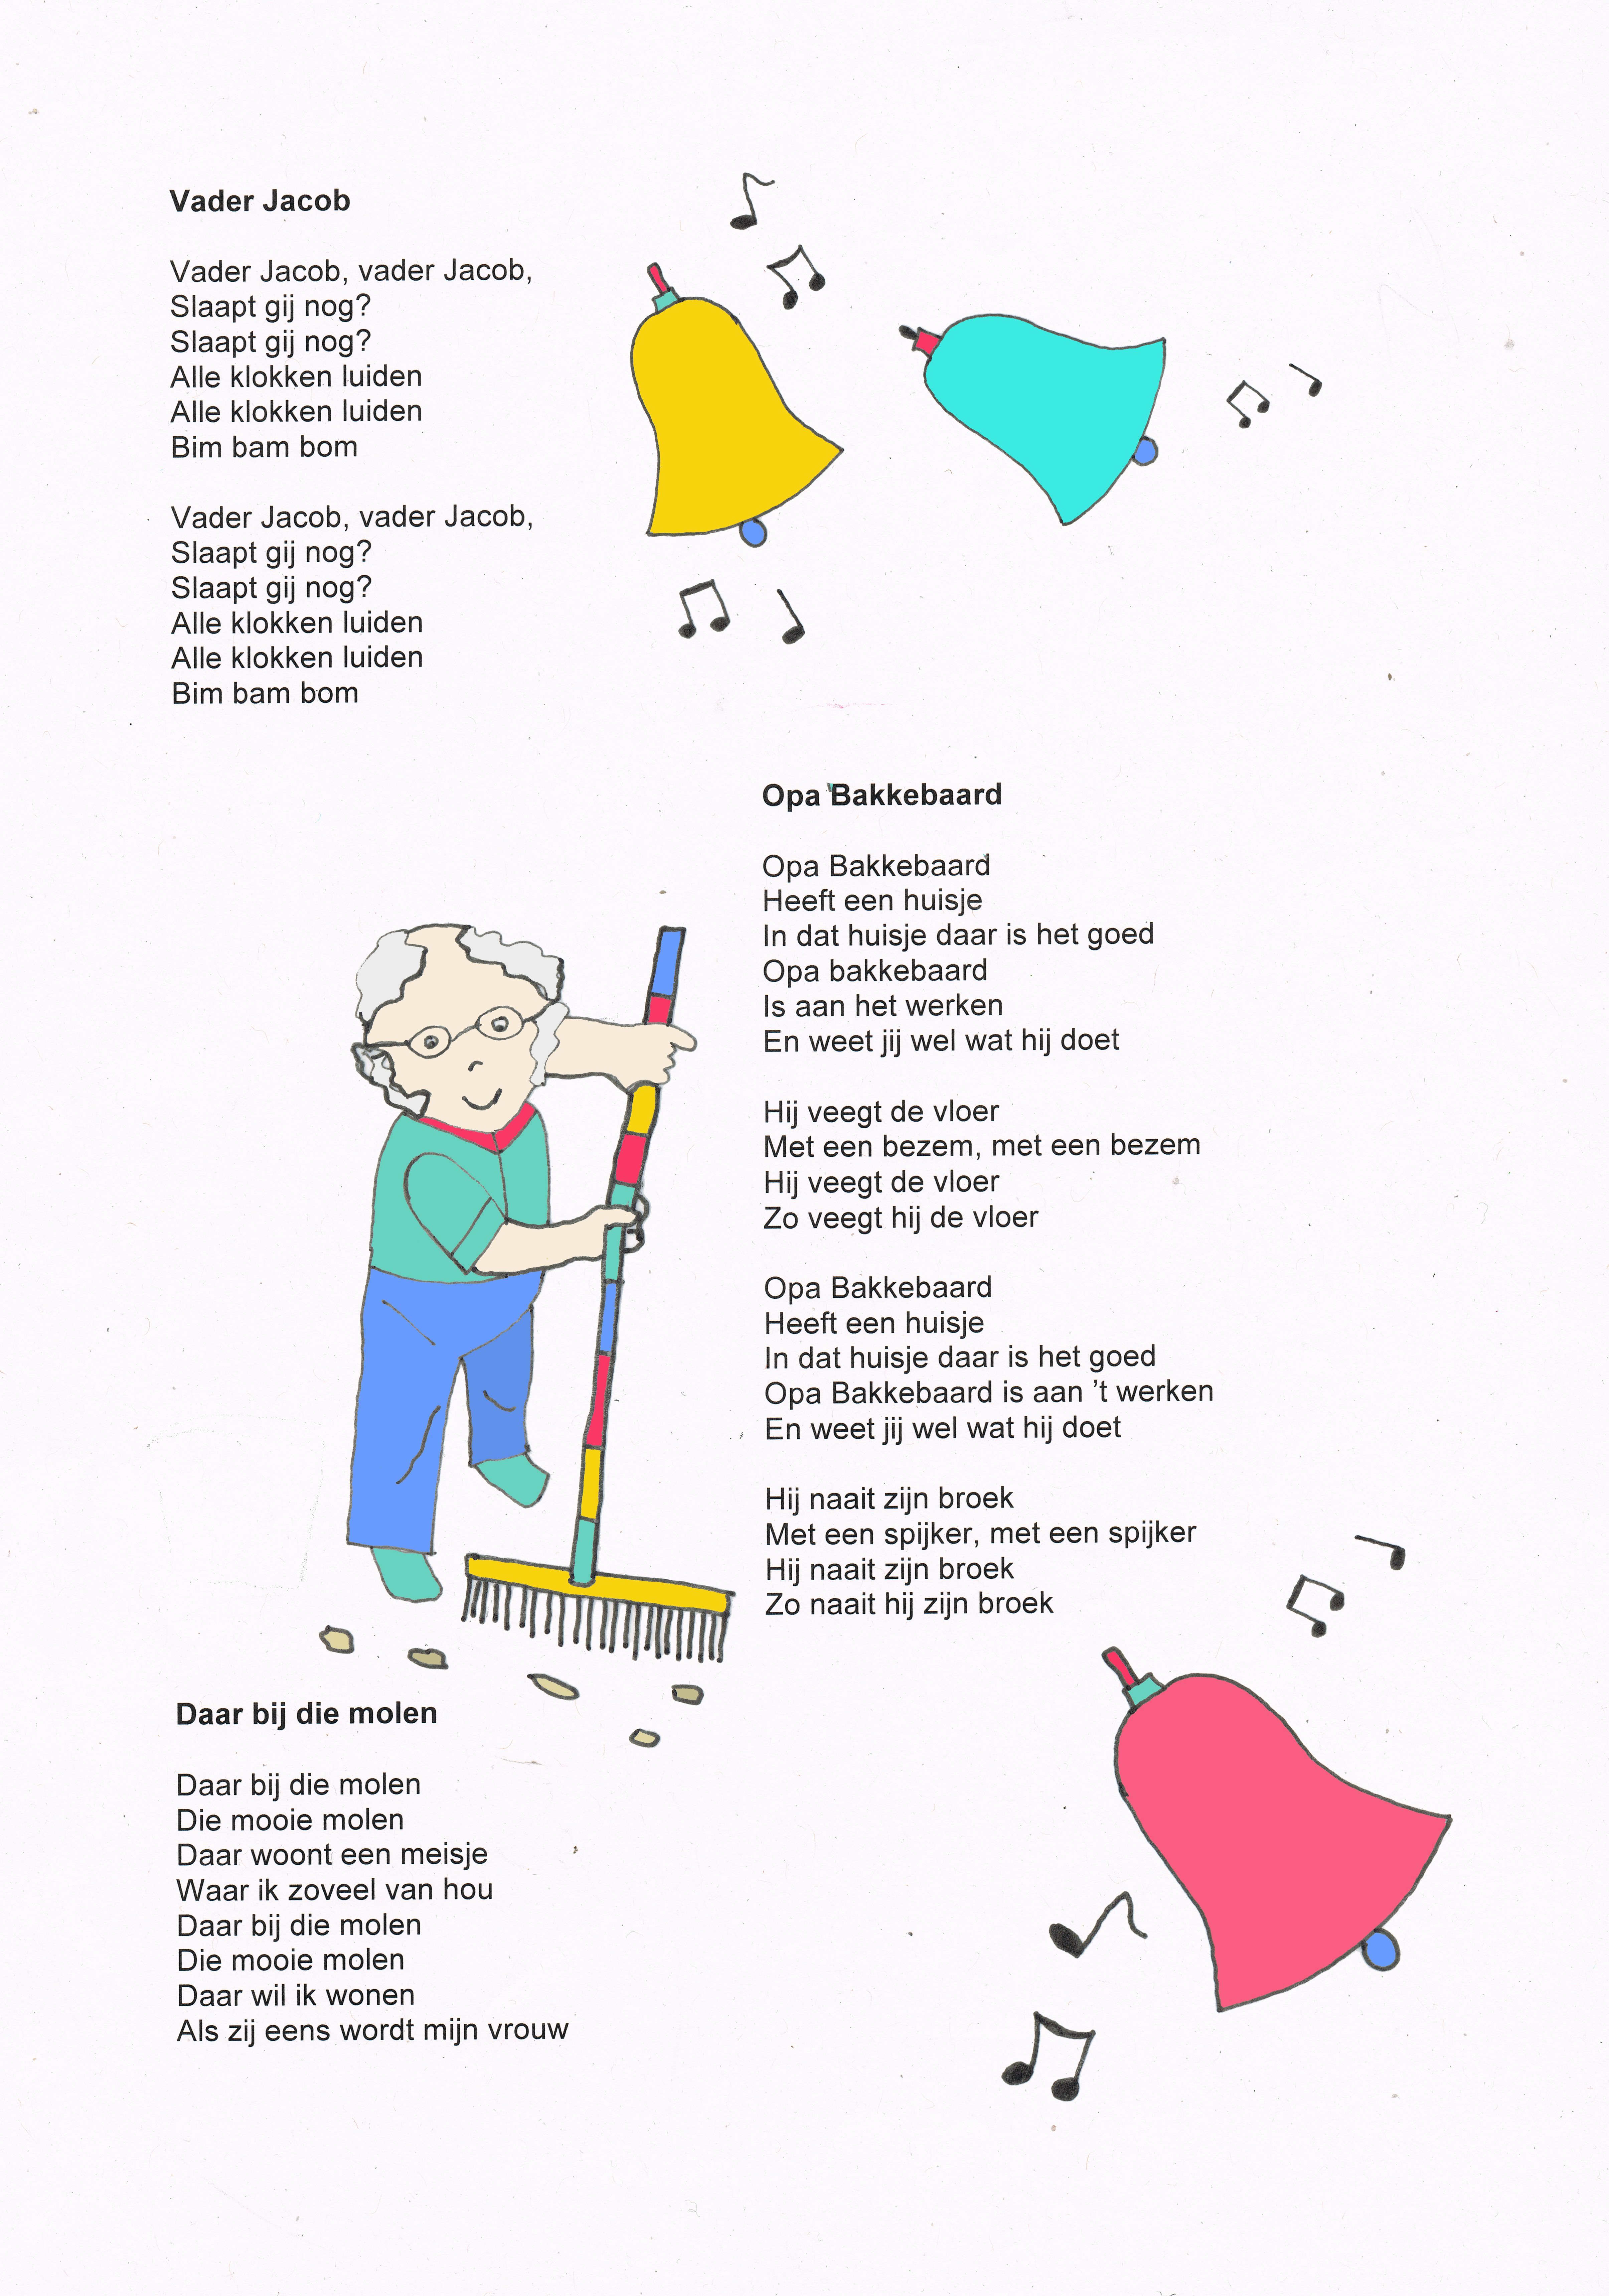 Vader Jacob
Vader Jacob, vader Jacob,
Slaapt gij nog?
Slaapt gij nog?
Alle klokken luiden
Alle klokken luiden
Bim bam bom
Vader Jacob, vader Jacob,
Slaapt gij nog?
Slaapt gij nog?
Alle klokken luiden
Alle klokken luiden
Bim bam bom
Opa Bakkebaard
Opa Bakkebaard
Heeft een huisje
In dat huisje daar is het goed
Opa bakkebaard
Is aan het werken
En weet jij wel wat hij doet
Hij veegt de vloer
Met een bezem, met een bezem
Hij veegt de vloer
Zo veegt hij de vloer
Opa Bakkebaard
Heeft een huisje
In dat huisje daar is het goed
Opa Bakkebaard is aan ’t werken
En weet jij wel wat hij doet
Hij naait zijn broek
Met een spijker, met een spijker
Hij naait zijn broek
Zo naait hij zijn broek
Daar bij die molen
Daar bij die molen
Die mooie molen
Daar woont een meisje
Waar ik zoveel van hou
Daar bij die molen
Die mooie molen
Daar wil ik wonen
Als zij eens wordt mijn vrouw